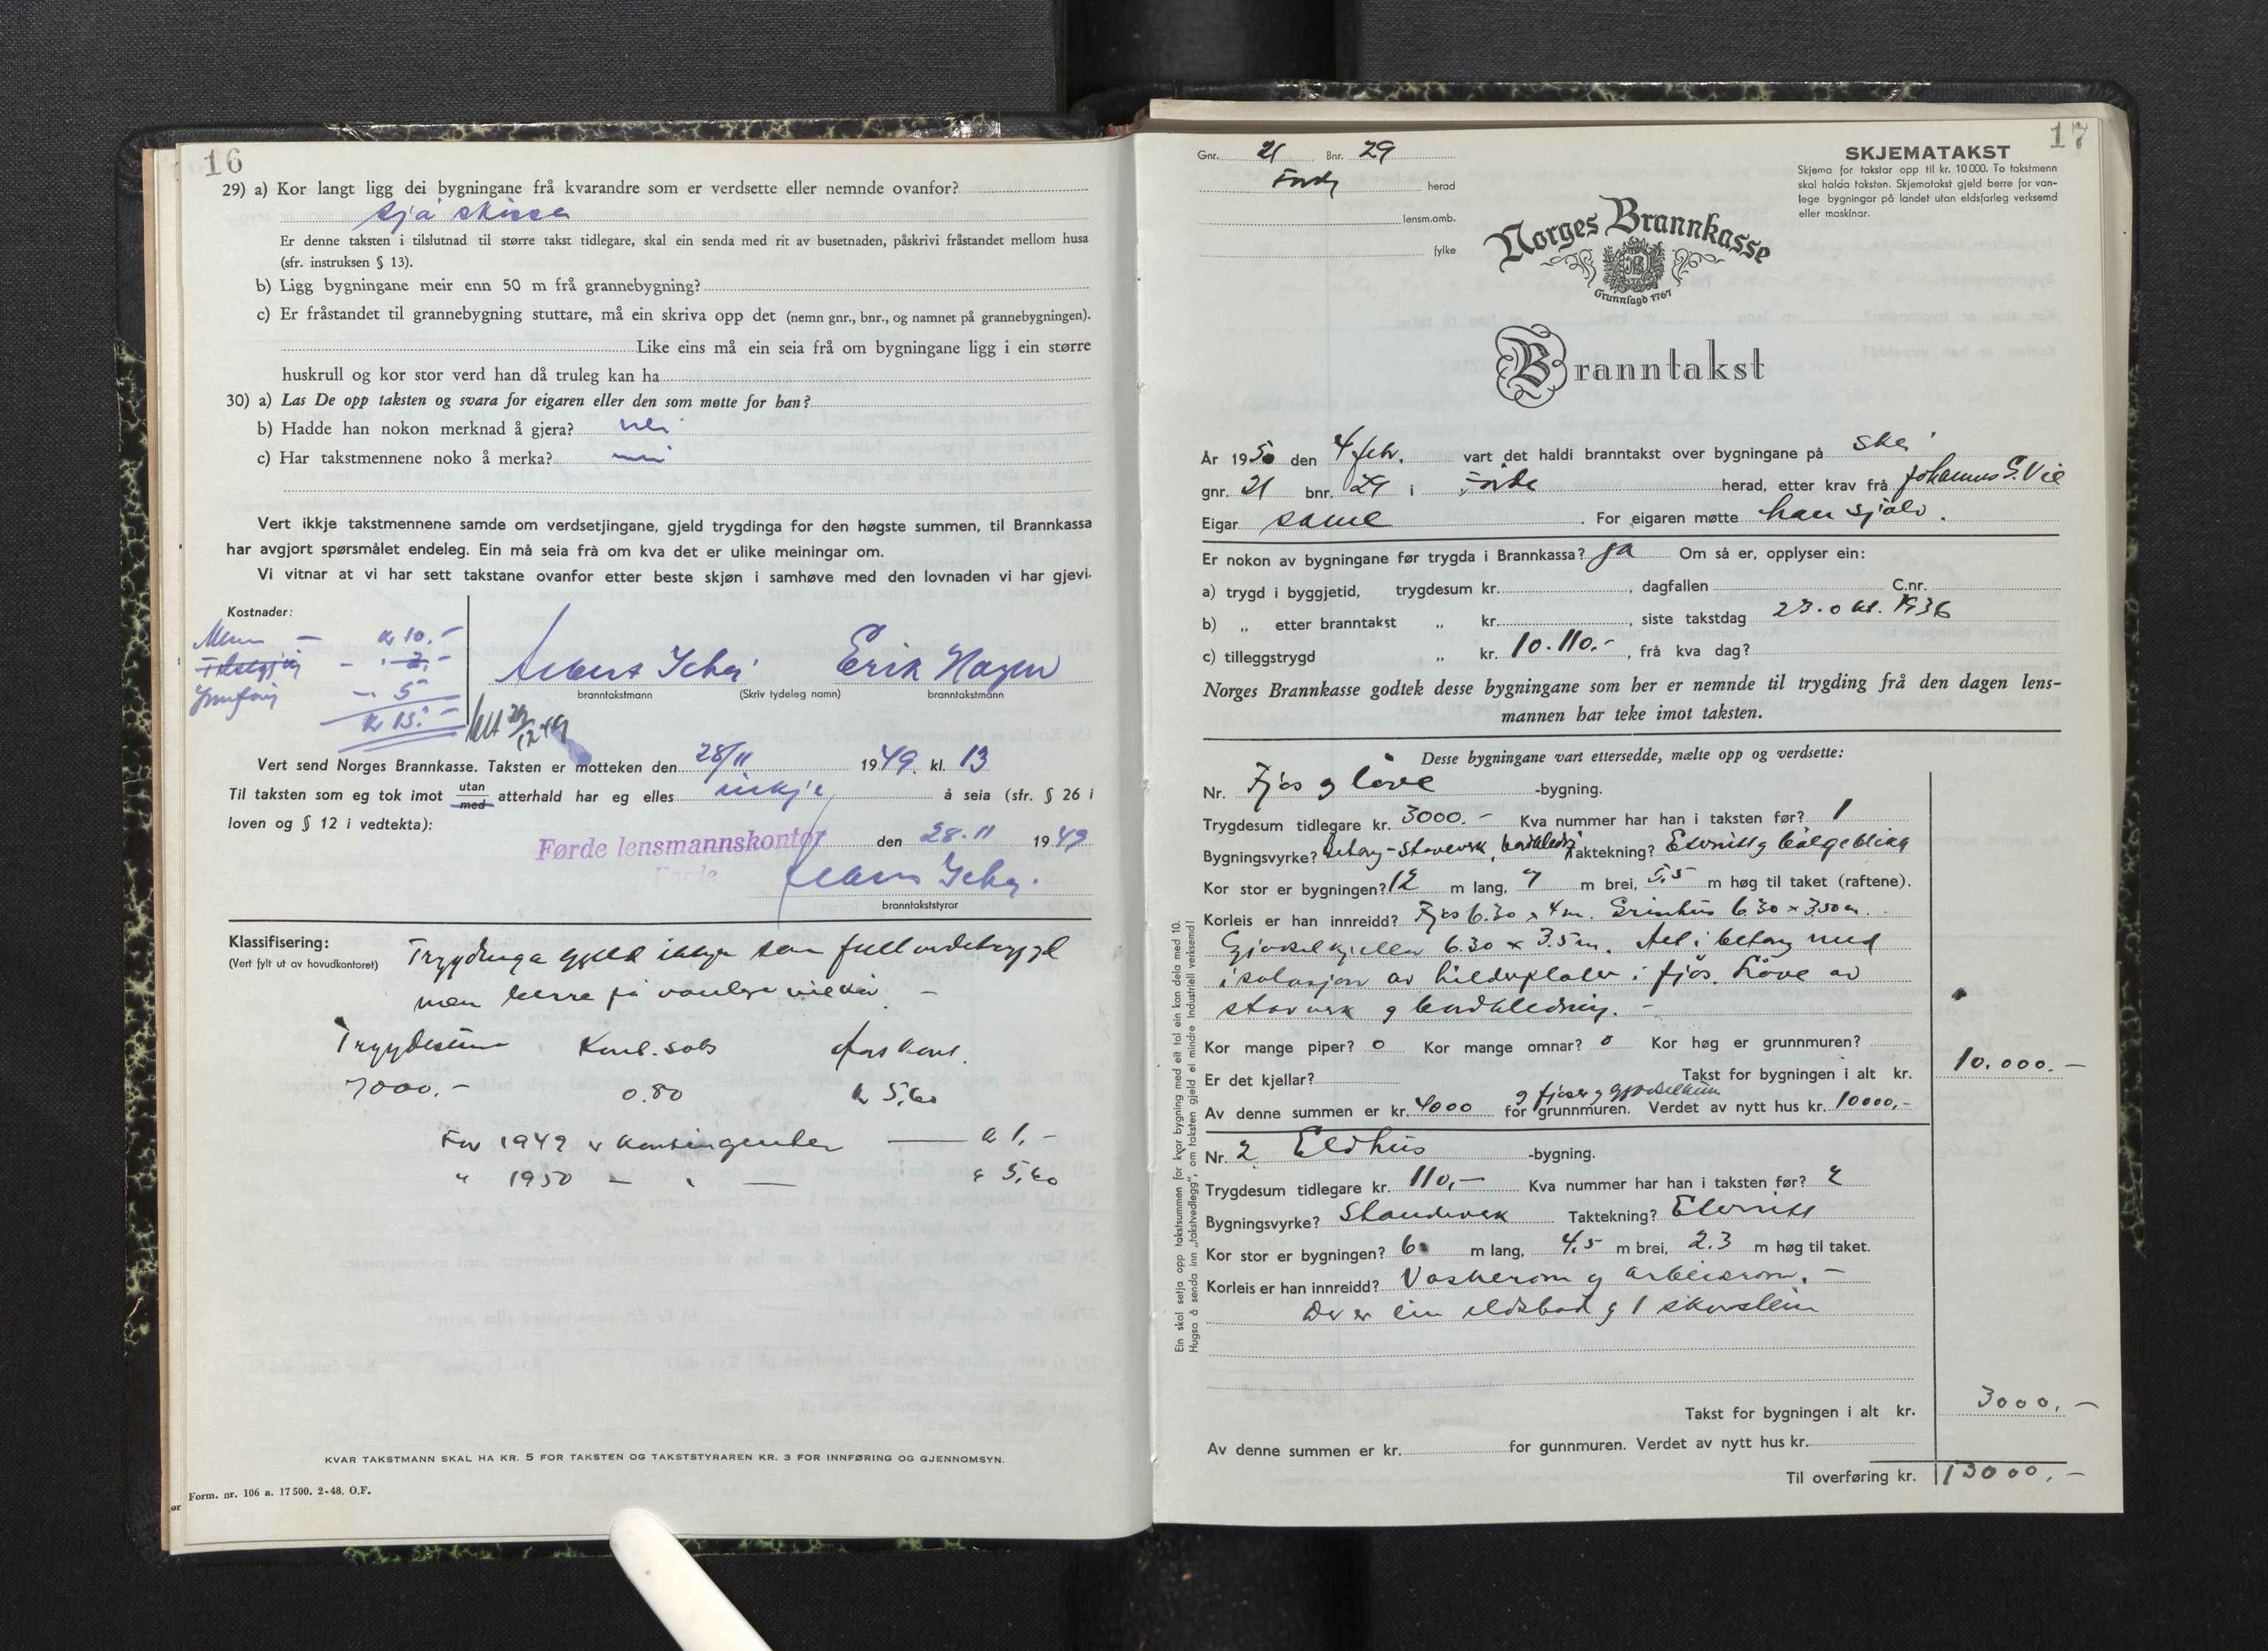 16
29) a) Kor langt ligg dei bygningane frå kvarandre som er verdsette eller nemnde ovanfor?
sjå skissa
Er denne taksten i tilslutnad til større takst tidlegare, skal ein senda med rit av busetnaden, påskrivi fråstandet mellom husa
(sfr. instruksen § 13).
b) Ligg bygningane meir enn 50 m frå grannebygning?
c) Er fråstandet til grannebygning stuttare, må ein skriva opp det (nemn gnr., bnr., og namnet på grannebygningen).
Like eins må ein seia frå om bygningane ligg i ein større
huskrull og kor stor verd han då truleg kan ha
30) a) Las De opp taksten og svara for eigaren eller den som møtte for han?
b) Hadde han nokon merknad å gjera? nei
c) Har takstmennene noko å merka? nei
Vert ikkje takstmennene samde om verdsetjingane, gjeld trygdinga for den høgste summen, til Brannkassa
har avgjort spørsmålet endeleg. Ein må seia frà om kva det er ulike meiningar om.
Vi vitnar at vi har sett takstane ovanfor etter beste skjøn i samhøve med den lovnaden vi har gjevi.
Kostnader:
Menn — kr 10.-
- 2.-
Innføring - 5
kr 15.-
Erik Hagen
branntakstmann (Skriv tydeleg namn) branntakstmann
29/12-49
Vert send Norges Brannkasse. Taksten er motteken den 28/11 1949. kl. 13
Til taksten som eg tok imot utan/med atterhald har eg elles inkje å seia (sfr. § 26 i
loven og § 12 i vedtekta):
Førde lensmannskontor den 28-11 1949
Førde
branntakststyrar
Klassifisering:
(Vert fylt ut av hovudkontoret)
Trygdinga gjeld ikkje som fullverdetrygd
men berre på vanlege vilkår -
Trygdesum Kont.sats Års kont.
7000.- 0.80 kr 5,60
For 1949 er kontingenten — kr 1.-
" 1950 - " — " 5,60
KVAR TAKSTMANN SKAL HA KR. 5 FOR TAKSTEN OG TAKSTSTYRAREN KR. 3 FOR INNFØRING OG GJENNOMSYN.
Form. nr. 106 a. 17 500. 2-48. O.F.
17
Gnr. 21 Bnr. 29
Førde herad
lensm.omb.
fylke
SKJEMATAKST
Skjema for takstar opp til kr. 10 000. To takstmenn
skal halda taksten. Skjematakst gjeld berre for van-
lege bygningar på landet utan eldsfarleg verksemd
eller maskinar.
Norges Brannkasse
Grunnlagd 1767
Branntakst
År 1950 den 4 febr. vart det haldi branntakst over bygningane på Skei
gnr. 21 bnr. 29 i Førde herad, etter krav frå Johannes S. Vie
Eigar same. For eigaren møtte han sjølv.
Er nokon av bygningane før trygda i Brannkassa? ja Om så er, opplyser ein:
a) trygd i byggjetid, trygdesum kr. , dagfallen C.nr.
b) „ etter branntakst „ kr. , siste takstdag 23. okt. 1936
c) tilleggstrygd „ kr. 10.110.- , frå kva dag?
Norges Brannkasse godtek desse bygningane som her er nemnde til trygding frå den dagen lens-
mannen har teke imot taksten.
Desse bygningane vart ettersedde, mælte opp og verdsette:
Nr. Fjøs og løve -bygning.
Trygdesum tidlegare kr. 3000.- Kva nummer har han i taksten før? 1
Bygningsvyrke? Betong - stavverk, bordkledn. Taktekning? Eternitt og bølgeblikk
Kor stor er bygningen? 12 m lang, 7 m brei, 5,5 m høg til taket (raftene).
Korleis er han innreidd? Fjøs 6.30 x 4 m. Grisehus 6.30 x 3.50 m.
Gjødselkjellar 6.30 x 3.5 m. Alt i betong med
isolasjon av hulderplater i fjøs. Løve av
stavverk og bordkledning. -
Kor mange piper? 0 Kor mange omnar? 0 Kor høg er grunnmuren?
Er det kjellar? Takst for bygningen i alt kr. 10.000.-
og fjøser og gjødselkum
Av denne summen er kr. 4000 for grunnmuren. Verdet av nytt hus kr. 10000,-
Nr. 2 Eldhus -bygning.
Trygdesum tidlegare kr. 110,- Kva nummer har han i taksten før? 2
Bygningsvyrke? Standverk Taktekning? Eternitt
Kor stor er bygningen? 6 m lang, 4,5 m brei, 2.3 m høg til taket.
Korleis er han innreidd? Vaskerom og arbeidsrom. -
Der er ein eldstad og 1 skorstein
Takst for bygningen i alt kr. 3000,-
Av denne summen er kr. for gunnmuren. Verdet av nytt hus kr.
Til overføring kr. 13000,-
Ein skal setja opp takstsummen for kvar bygning med eit tal ein kan dela med 10.
Hugsa å senda inn „takstvedlegg", om taksten gjeld ei mindre industriell verksemd!